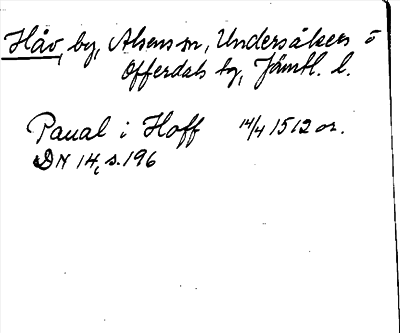 Håv, by, Alsens sn, Undersåkers o
Offerdals tg, Jämtl. l.
Paual i Hoff 14/4 1512 or.
DN 14, s. 196